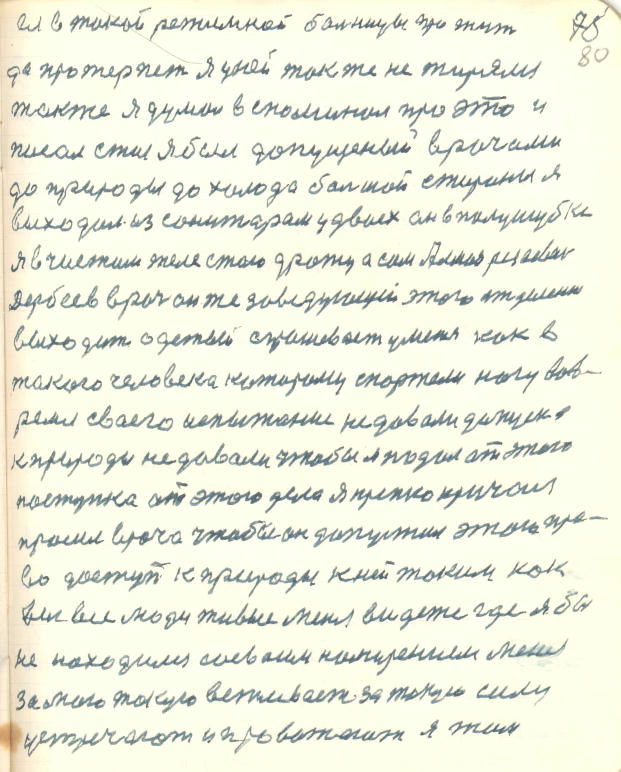 ел в такой режимной больницы про жит 75
80
да протерпет я у ней также не терялся
также я думал вспоминал про это и
писал стил я был допущеный врачами
до природы до холода большой стороны я
выходил из санитарам у двоех он в полушубке
я в чистим теле стою дрожу а сам
Дербеев врач он же заведующий этого отделения
выходит одетый спрашевает у меня как в
такого человека которому спортели ногу вов-
ремя своего испытание не довали допуск
к природы недовали чтобы я подал от этого
поступка от этого дела я крепко кричал
просил врача чтобы он допустил этого пра-
во доступ к природы к ней таким как
вы все люди живые меня видете где я бы
не находился соевоим намерением меня
за мого такую вежливаст за такую силу
устречают и провожают я там